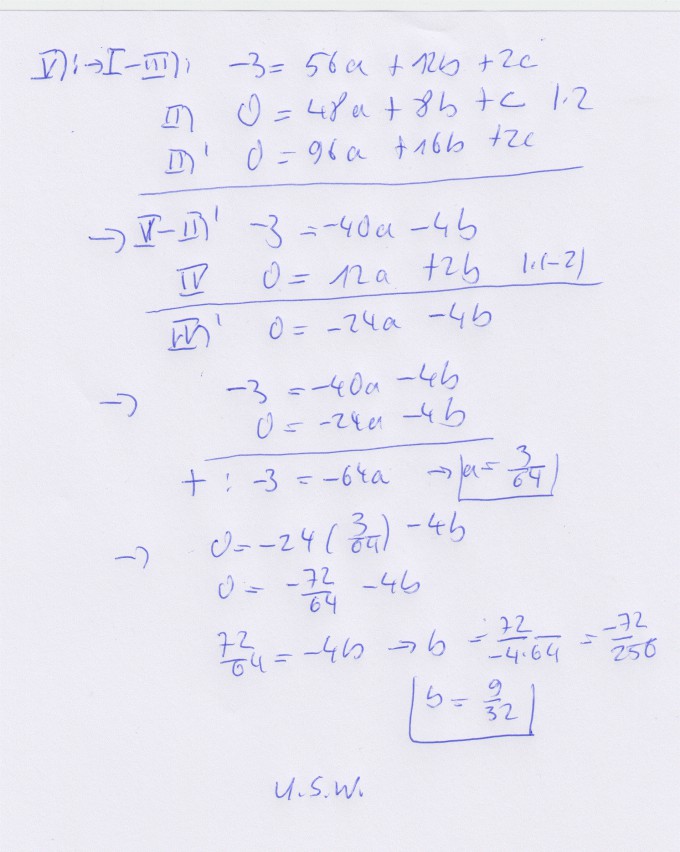 V): → I - III): -3 = 56a + 12b + 2c
II) 0 = 48a + 8b + c |·2
II)' 0 = 96a + 16b + 2c
→ V - II)' -3 = -40a - 4b
IV 0 = 12a + 2b |·(-2)
IV)' 0 = -24a - 4b
→ -3 = -40a - 4b
0 = -24a - 4b
+ : -3 = -64a → a = 3/64
→ 0 = -24(3/64) - 4b
0 = -72/64 - 4b
72/64 = -4b → b = 72/-4·64 = -72/256
b = 9/32
u.s.w.